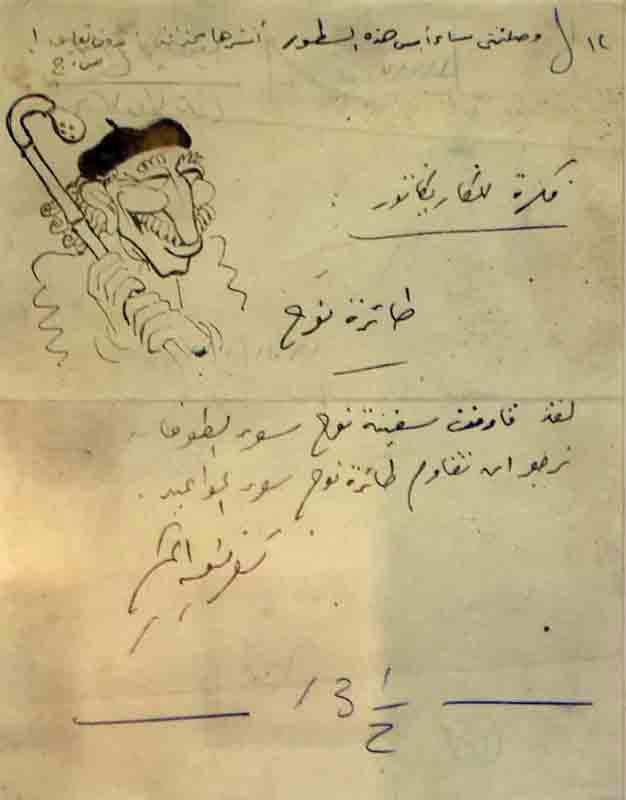 وصلتني مساء أمس هذه السطور أنشرها بحذافيرها بدون تعليق!
فكرة للكاريكاتور:
طائرة نوح
لقد قاومت سفينة نوح سوء الطوفان
نرجو ان تقاوم طائرة نوح سوء المواعيد.
توفيق الحكيم